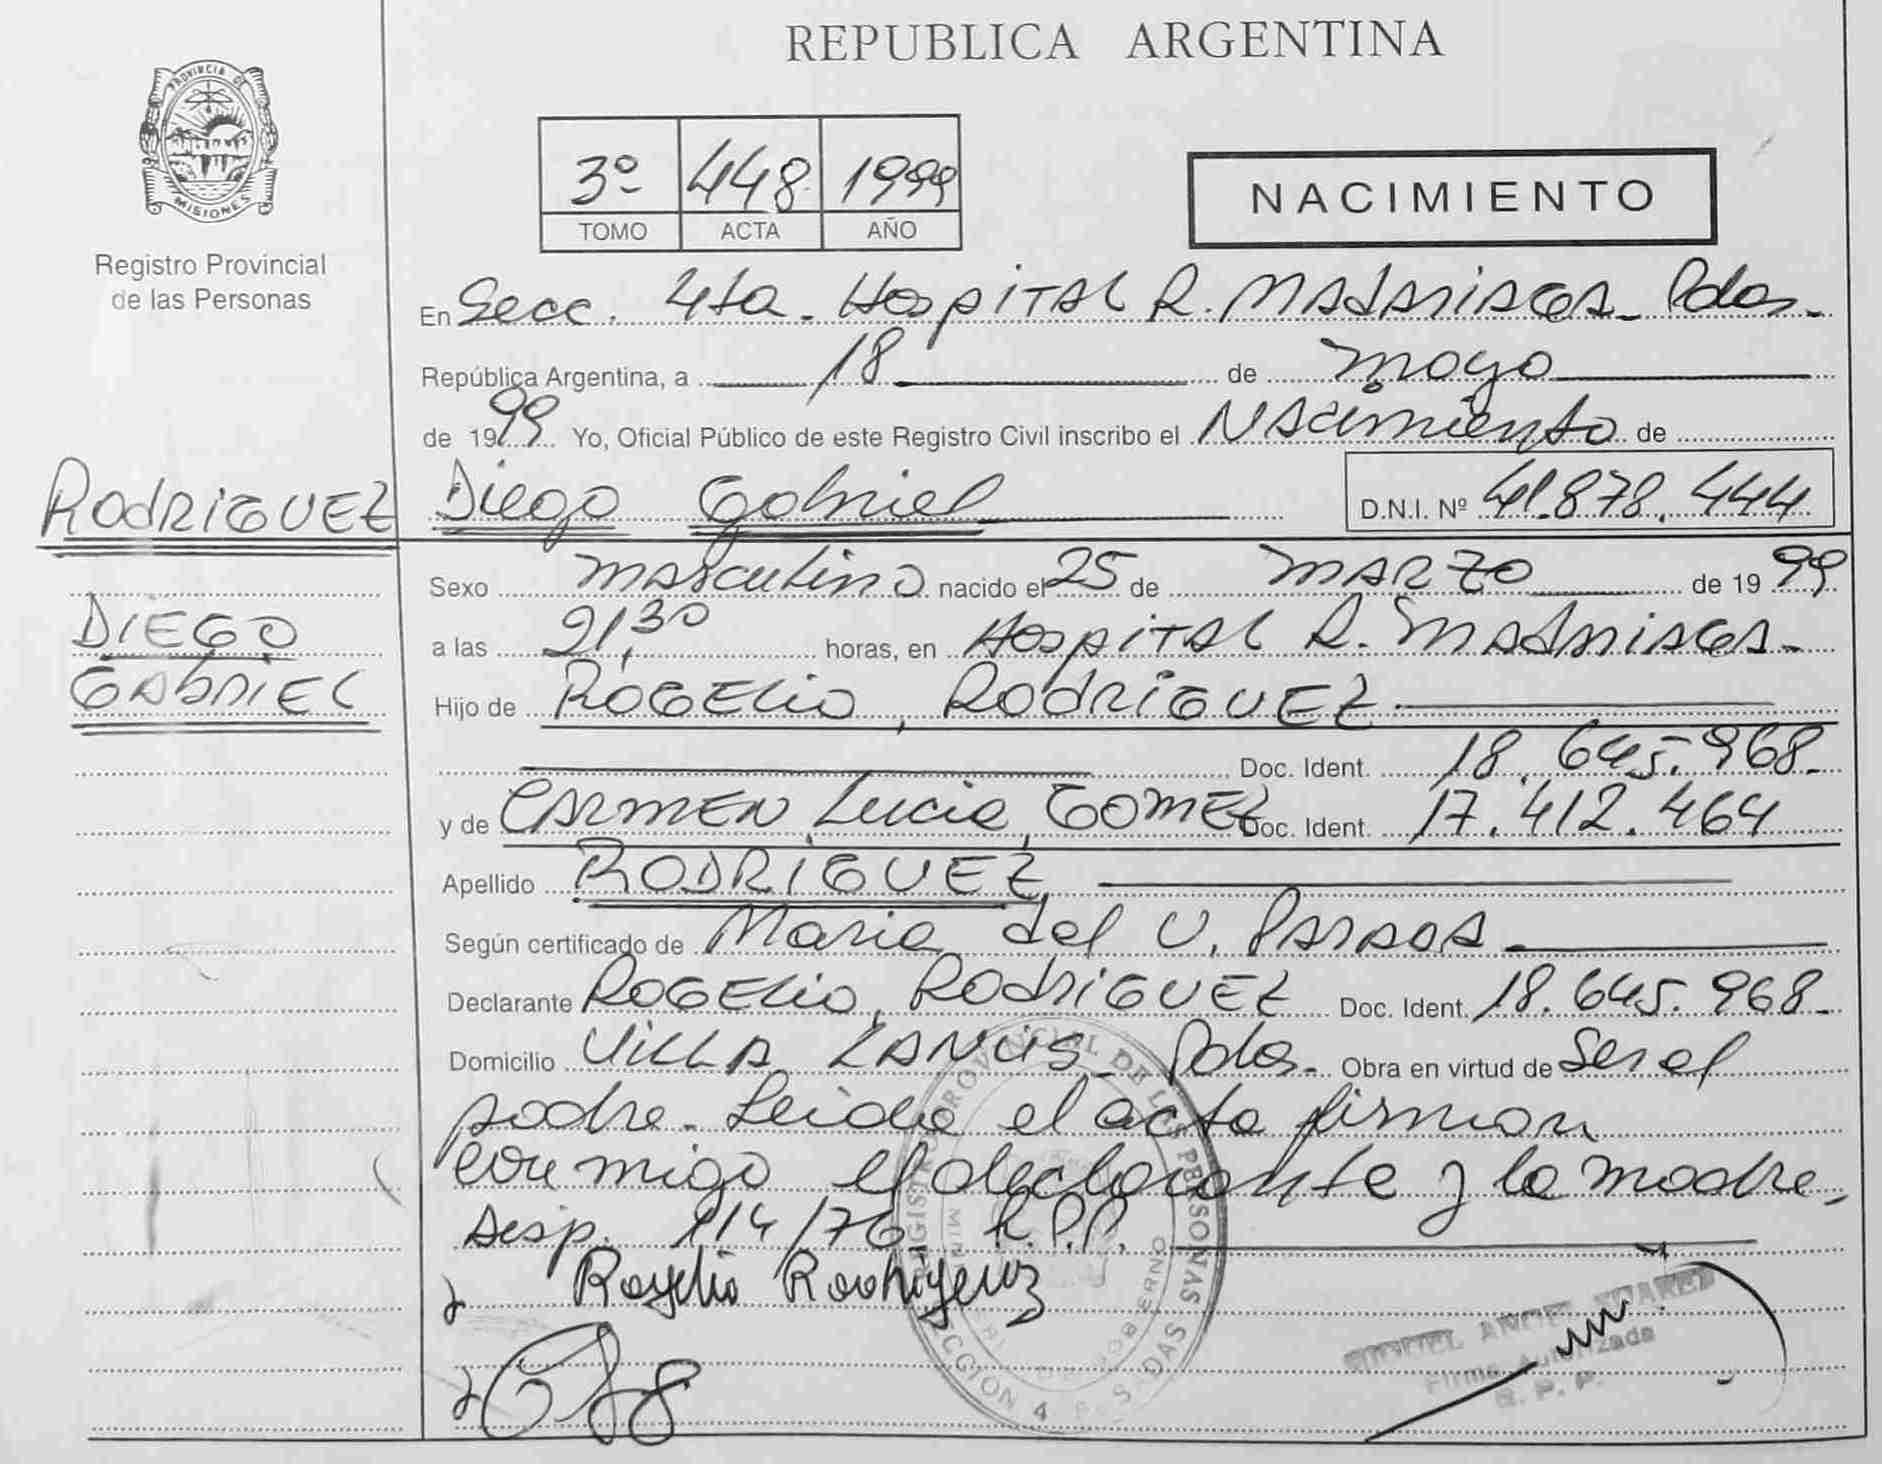 REPUBLICA ARGENTINA
PROVINCIA DE
MISIONES
Registro Provincial
de las Personas
3º 448 1999
TOMO ACTA AÑO
NACIMIENTO
En Secc. 4ta. Hospital R. MADARIAGA - Pdas.
República Argentina, a 18 de mayo
de 1999 Yo, Oficial Público de este Registro Civil inscribo el Nacimiento de
RODRIGUEZ Diego Gabriel D.N.I. Nº 41.878.444
Sexo masculino nacido el 25 de MARZO de 1999
DIEGO
a las 21,30 horas, en Hospital R. MADARIAGA -
GABRIEL
Hijo de ROGELIO, RODRIGUEZ
Doc. Ident. 18.645.968-
y de CARMEN Lucia, GOMEZ Doc. Ident. 17.412.464
Apellido RODRIGUEZ
Según certificado de Maria del V.
Declarante ROGELIO, RODRIGUEZ Doc. Ident. 18.645.968-
Domicilio VILLA LANUS - Pdas. Obra en virtud de Ser el
padre - Leida el acta firman
conmigo el declarante y la madre,
Disp. 114/76 R.P.P.
Rogelio Rodriguez
REGISTRO PROVINCIAL DE LAS PERSONAS
SECCION 4 POSADAS
GOBIERNO
MIGUEL ANGEL SUAREZ
Firma Autorizada
R. P. P.